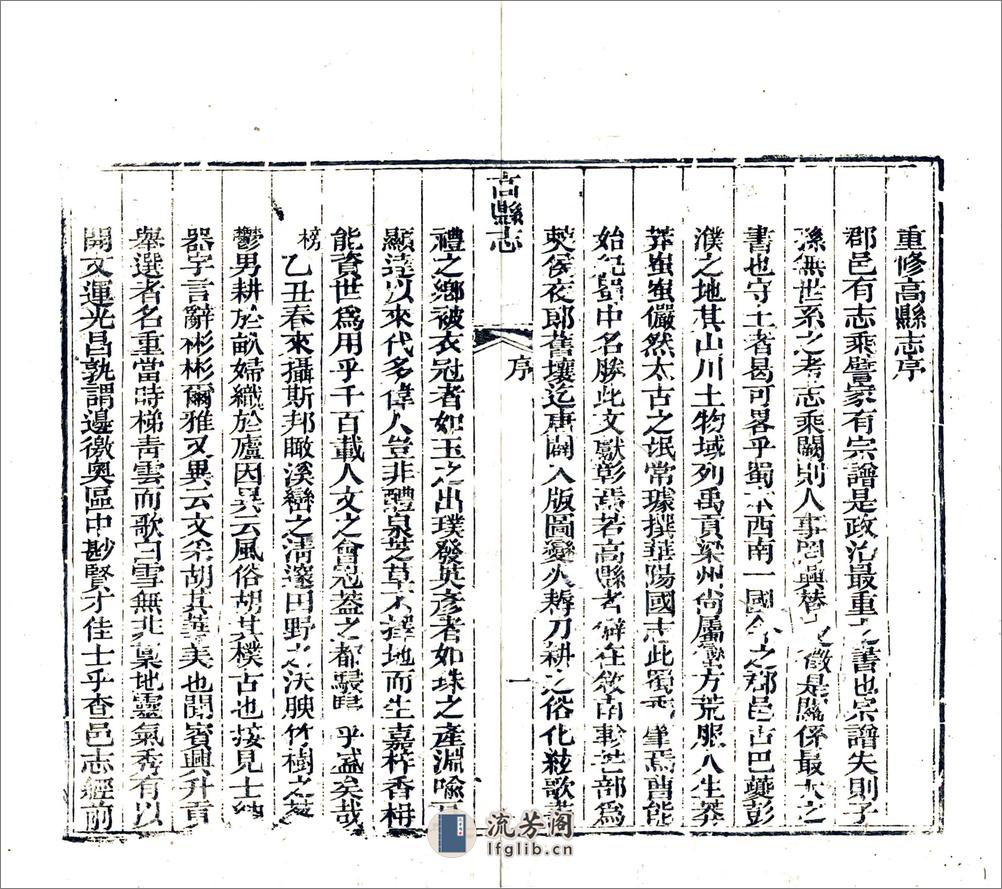 重修高縣志序
郡邑有志乘譬家有宗譜是政治最重之書也宗譜失則子
孫無世系之考志乘闕則人事罔興替之徵是關係最大之
書也守土者曷可畧乎蜀本西南一國今之郡邑古巴蘷彭
濮之地其山川土物域列禹貢梁州尚屬蠻方荒服人生莽
莽蚩蚩儼然太古之氓常璩撰華陽國志此蜀 肇焉曹能
始紀蜀中名勝此文獻彰焉若高縣者僻在敘南畛芒部爲
僰侯夜郎舊壤迄唐闢入版圖變火耨刀耕之俗化絃歌
高縣志
序
一
禮之鄉被衣冠者如玉之出璞發英彥者如珠之產淵喻
顯達以來代多偉人豈非醴泉芝草不擇地而生嘉粹香枏
能資世爲用乎千百載人文之會冠蓋之都 乎盛矣哉
榜乙丑春來攝斯邦瞰溪巒之清邃田野之沃腴竹樹之
鬱男耕於畝婦織於廬因異云風俗胡其樸古也接見士紳
器字言辭彬彬爾雅又異云文采胡其華美也聞賓興升貢
舉選者名重當時梯青雲而歌白雪無非稟地靈氣秀有以
開文運光昌孰謂邊徼奥區中尠賢才佳士乎查邑志經前
流芳阁
lfglib.cn